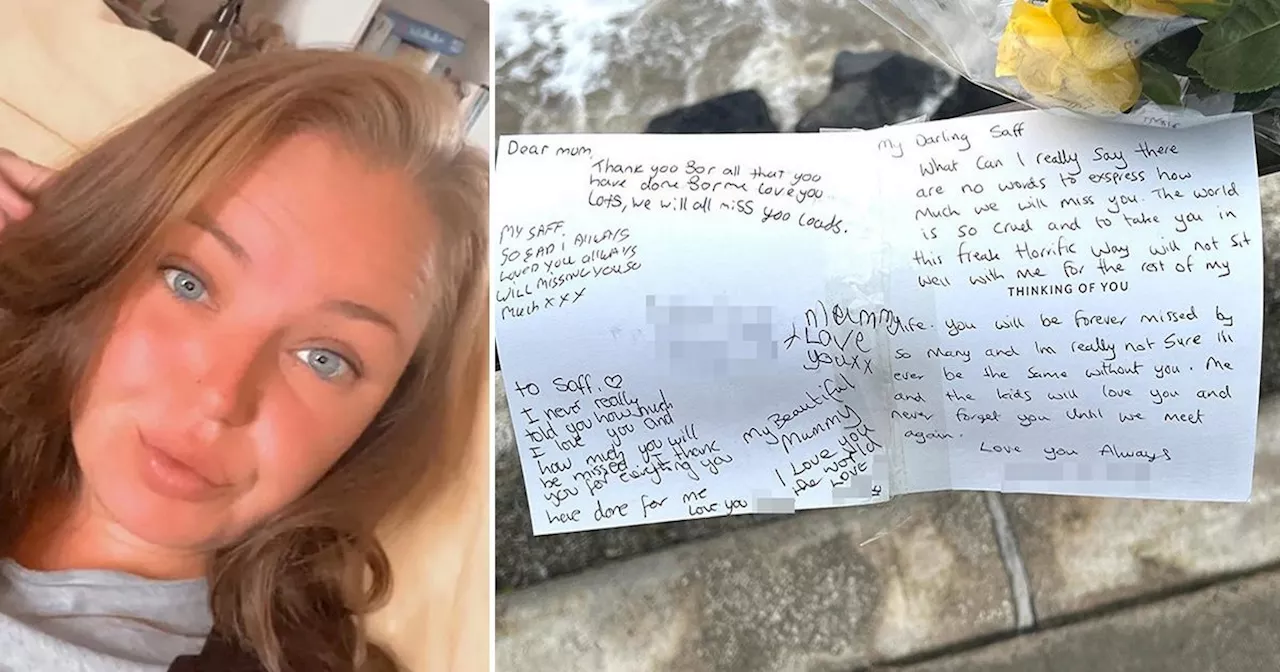 Dear mum,
Thank you for all that you
have done for me love you
Lots, we will all miss you loads.
MY SAFF.
SO SAD I ALWAYS
LOVED YOU allways
WILL MISSING YOU SO
Much x x x
to Saff. ♡
I never really
told you how much
I love you and
how much you will
be missed, thank
you for everything you
have done for me
love you
Mummy
x Love
you xx
My Beautiful
Mummy
I Love you
the world
love
My Darling Saff
What Can I really Say there
are no words to exspress how
Much we will miss you. The world
is so cruel and to take you in
this freak Horrific way will not sit
well with me for the rest of my
THINKING OF YOU
life. you will be forever missed by
so many and Im really not Sure Ill
ever be the Same without you. Me
and the kids will love you and
never forget you Until we meet
again.
Love you Always